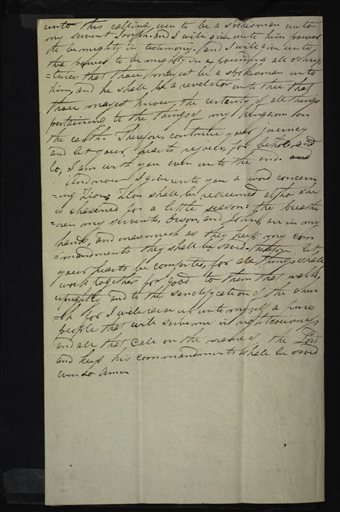 unto this calling, even to be a spokesman unto
my servant Joseph. and I will give unto him power
to be mighty in testimony. and I will give unto
thee power to be mighty in expounding all scrip
=tures that thou mayest be a spokesman unto
him, and he shall be a revelator unto thee that
thou mayest know the certainty of all things
pertaining to the things of my kingdom on
the earth. Therefore continue your journey
and let your hearts rejoice, for behold and
lo, I am with you even unto the end.
And now I give unto you a word concern
=ing Zion, Zion shall be redeemed altho she
is chasened for a little season. thy breath
=ren my servants Orson, and John are in my
hands, and inasmuch as they keep my com
=mandments they shall be saved. Therefore let
your hearts be comforted, for all things shall
work together for good to them that walk
uprightly and to the sanctification of the chur
=ch for I will raise up unto myself a pure
people that will serve me in righteousness
and all that call on the name of the Lord
and keep his commandments shall be saved
even so Amen